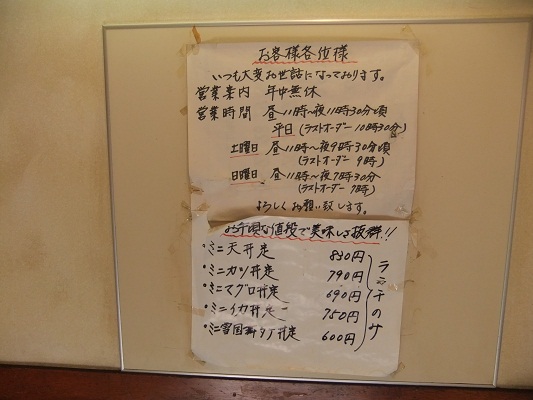 お客様各位様
いつも大変お世話になっております。
営業案内 年中無休
営業時間 昼11時〜夜11時30分頃
平日(ラストオーダー10時30分)
土曜日 昼11時〜夜9時30分頃
(ラストオーダー 9時)
日曜日 昼11時〜夜7時30分
(ラストオーダー 7時)
よろしくお願い致します。
お手頃な値段で美味しさ抜群!!
・ミニ天丼定 830円
・ミニカツ丼定 790円
・ミニマグロ丼定 690円
・ミニイカ丼定 750円
・ミニ 定 600円